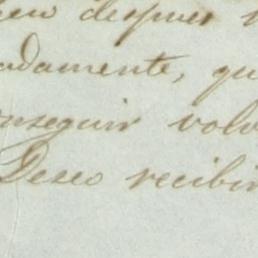 despues
adamente, qu
nseguir volv
Deseo recibir